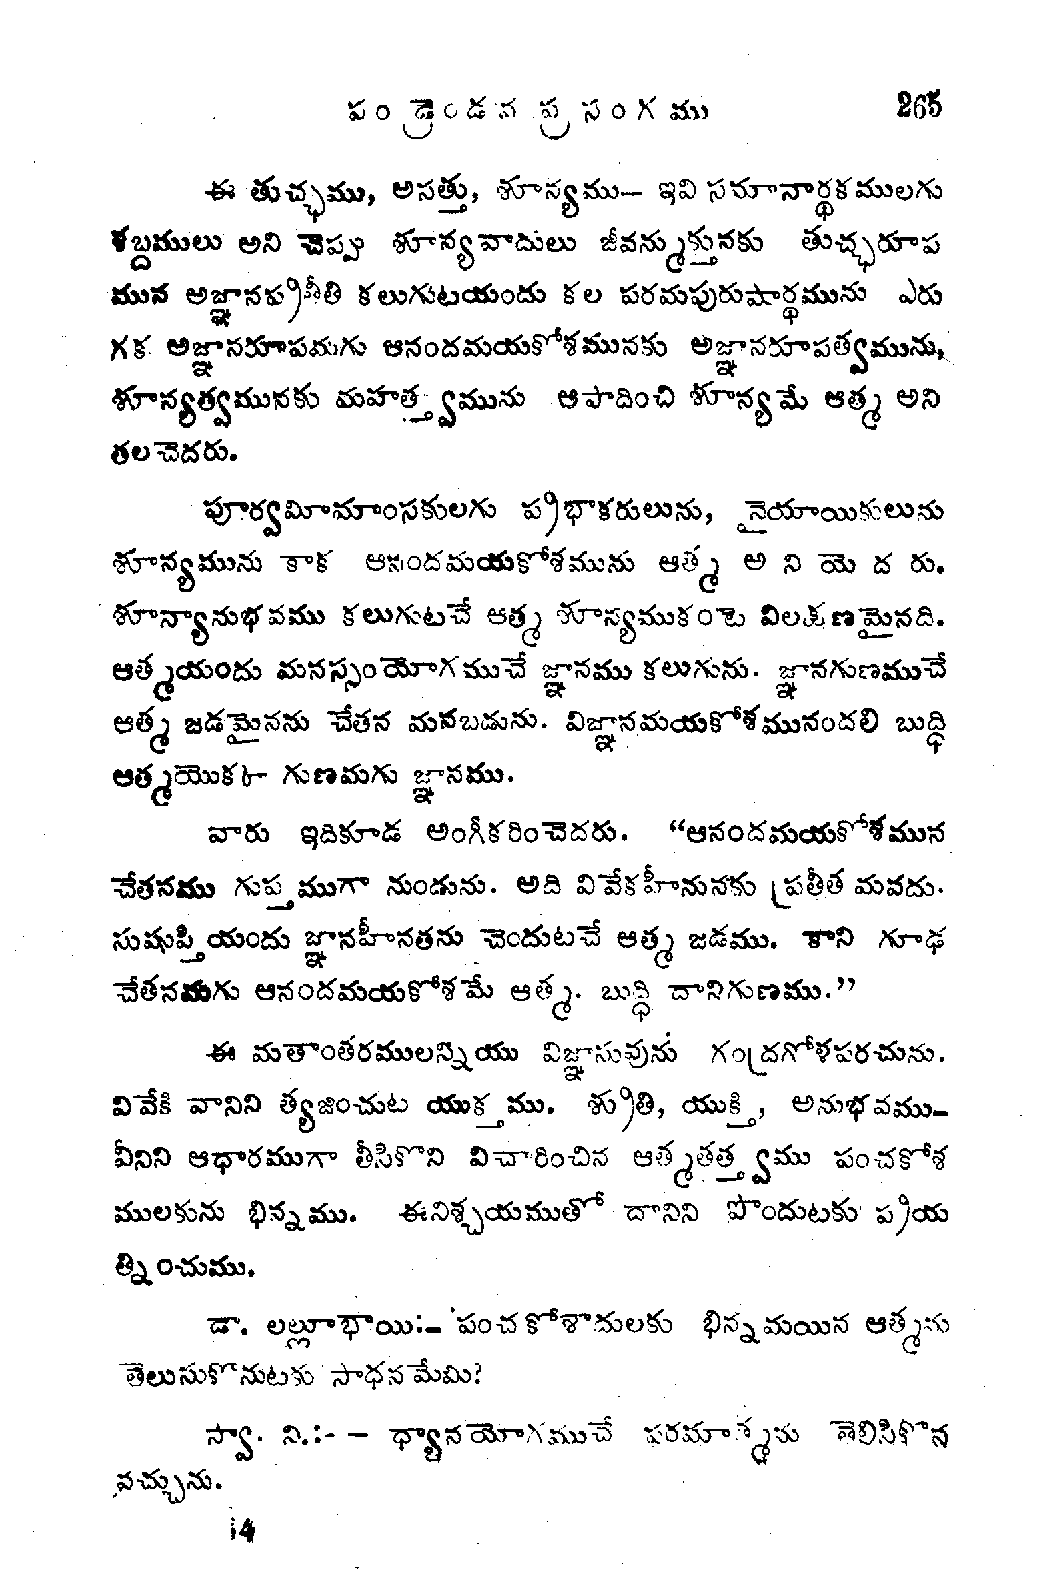 పండ్రెండవ ప్రసంగము 265
ఈ తుచ్ఛము, అసత్తు, శూన్యము— ఇవి సమానార్థకములగు
శబ్దములు అని చెప్పు శూన్యవాదులు జీవన్ముక్తునకు తుచ్ఛరూప
మున అజ్ఞానప్రతీతి కలుగుటయందు కల పరమపురుషార్థమును ఎరు
గక అజ్ఞానరూపమగు ఆనందమయకోశమునకు అజ్ఞానరూపత్వమును,
శూన్యత్వమునకు మహత్త్వమును ఆపాదించి శూన్యమే ఆత్మ అని
తలచెదరు.
పూర్వమీమాంసకులగు ప్రభాకరులును, నైయాయికులును
శూన్యమును కాక ఆనందమయకోశమును ఆత్మ అ ని యె ద రు.
శూన్యానుభవము కలుగుటచే ఆత్మ శూన్యముకంటె విలక్షణమైనది.
ఆత్మయందు మనస్సంయోగముచే జ్ఞానము కలుగును. జ్ఞానగుణముచే
ఆత్మ జడమైనను చేతన మనబడును. విజ్ఞానమయకోశమునందలి బుద్ధి
ఆత్మయొక్క గుణమగు జ్ఞానము.
వారు ఇదికూడ అంగీకరించెదరు. “ఆనందమయకోశమున
చేతనము గుప్తముగా నుండును. అది వివేకహీనునకు ప్రతీత మవదు.
సుషుప్తియందు జ్ఞానహీనతను చెందుటచే ఆత్మ జడము. కాని గూఢ
చేతనమగు ఆనందమయకోశమే ఆత్మ. బుద్ధి దానిగుణము.”
ఈ మతాంతరములన్నియు విజ్ఞాసువును గంద్రగోళపరచును.
వివేకి వానిని త్యజించుట యుక్తము. శ్రుతి, యుక్తి, అనుభవము—
వీనిని ఆధారముగా తీసికొని విచారించిన ఆత్మతత్త్వము పంచకోశ
ములకును భిన్నము. ఈనిశ్చయముతో దానిని పొందుటకు ప్రయ
త్నించుము.
డా. లల్లూభాయి:— పంచకోశాదులకు భిన్నమయిన ఆత్మను
తెలుసుకొనుటకు సాధనమేమి?
స్వా. ని.:- — ధ్యానయోగముచే పరమాత్మను తెలిసికొన
వచ్చును.
14